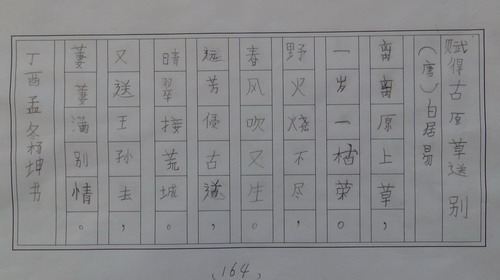 赋得古原草送别
(唐)白居易
离离原上草,
一岁一枯荣。
野火烧不尽,
春风吹又生。
远芳侵古道,
晴翠接荒城。
又送王孙去,
萋萋满别情。
丁酉孟冬坤书
164